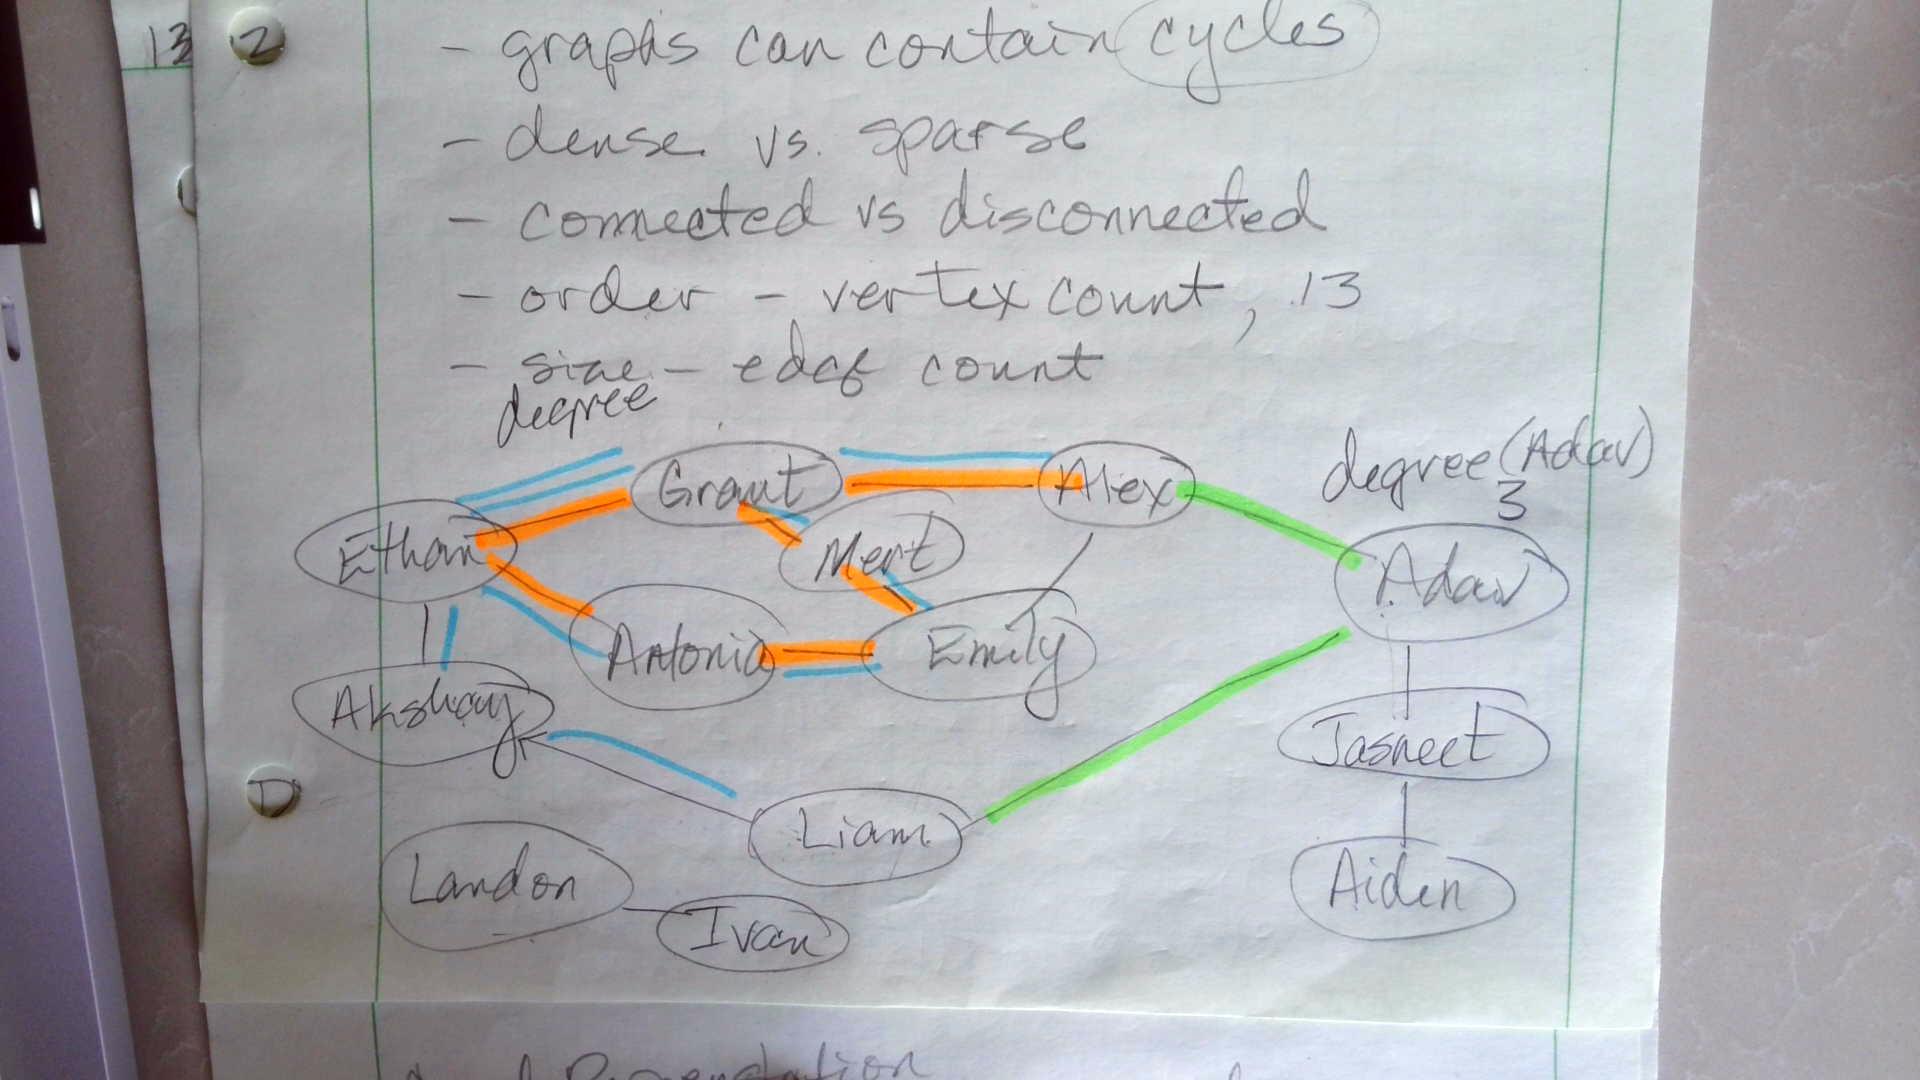 13 2
- graphs can contain cycles
- dense vs. sparse
- connected vs disconnected
- order - vertex count, 13
- size - edge count
degree
degree (Adav)
3
Grant
Alex
Ethan
Mert
Adav
Antonia
Emily
Akshay
Jasneet
Liam
Landon
Aiden
Ivan
D